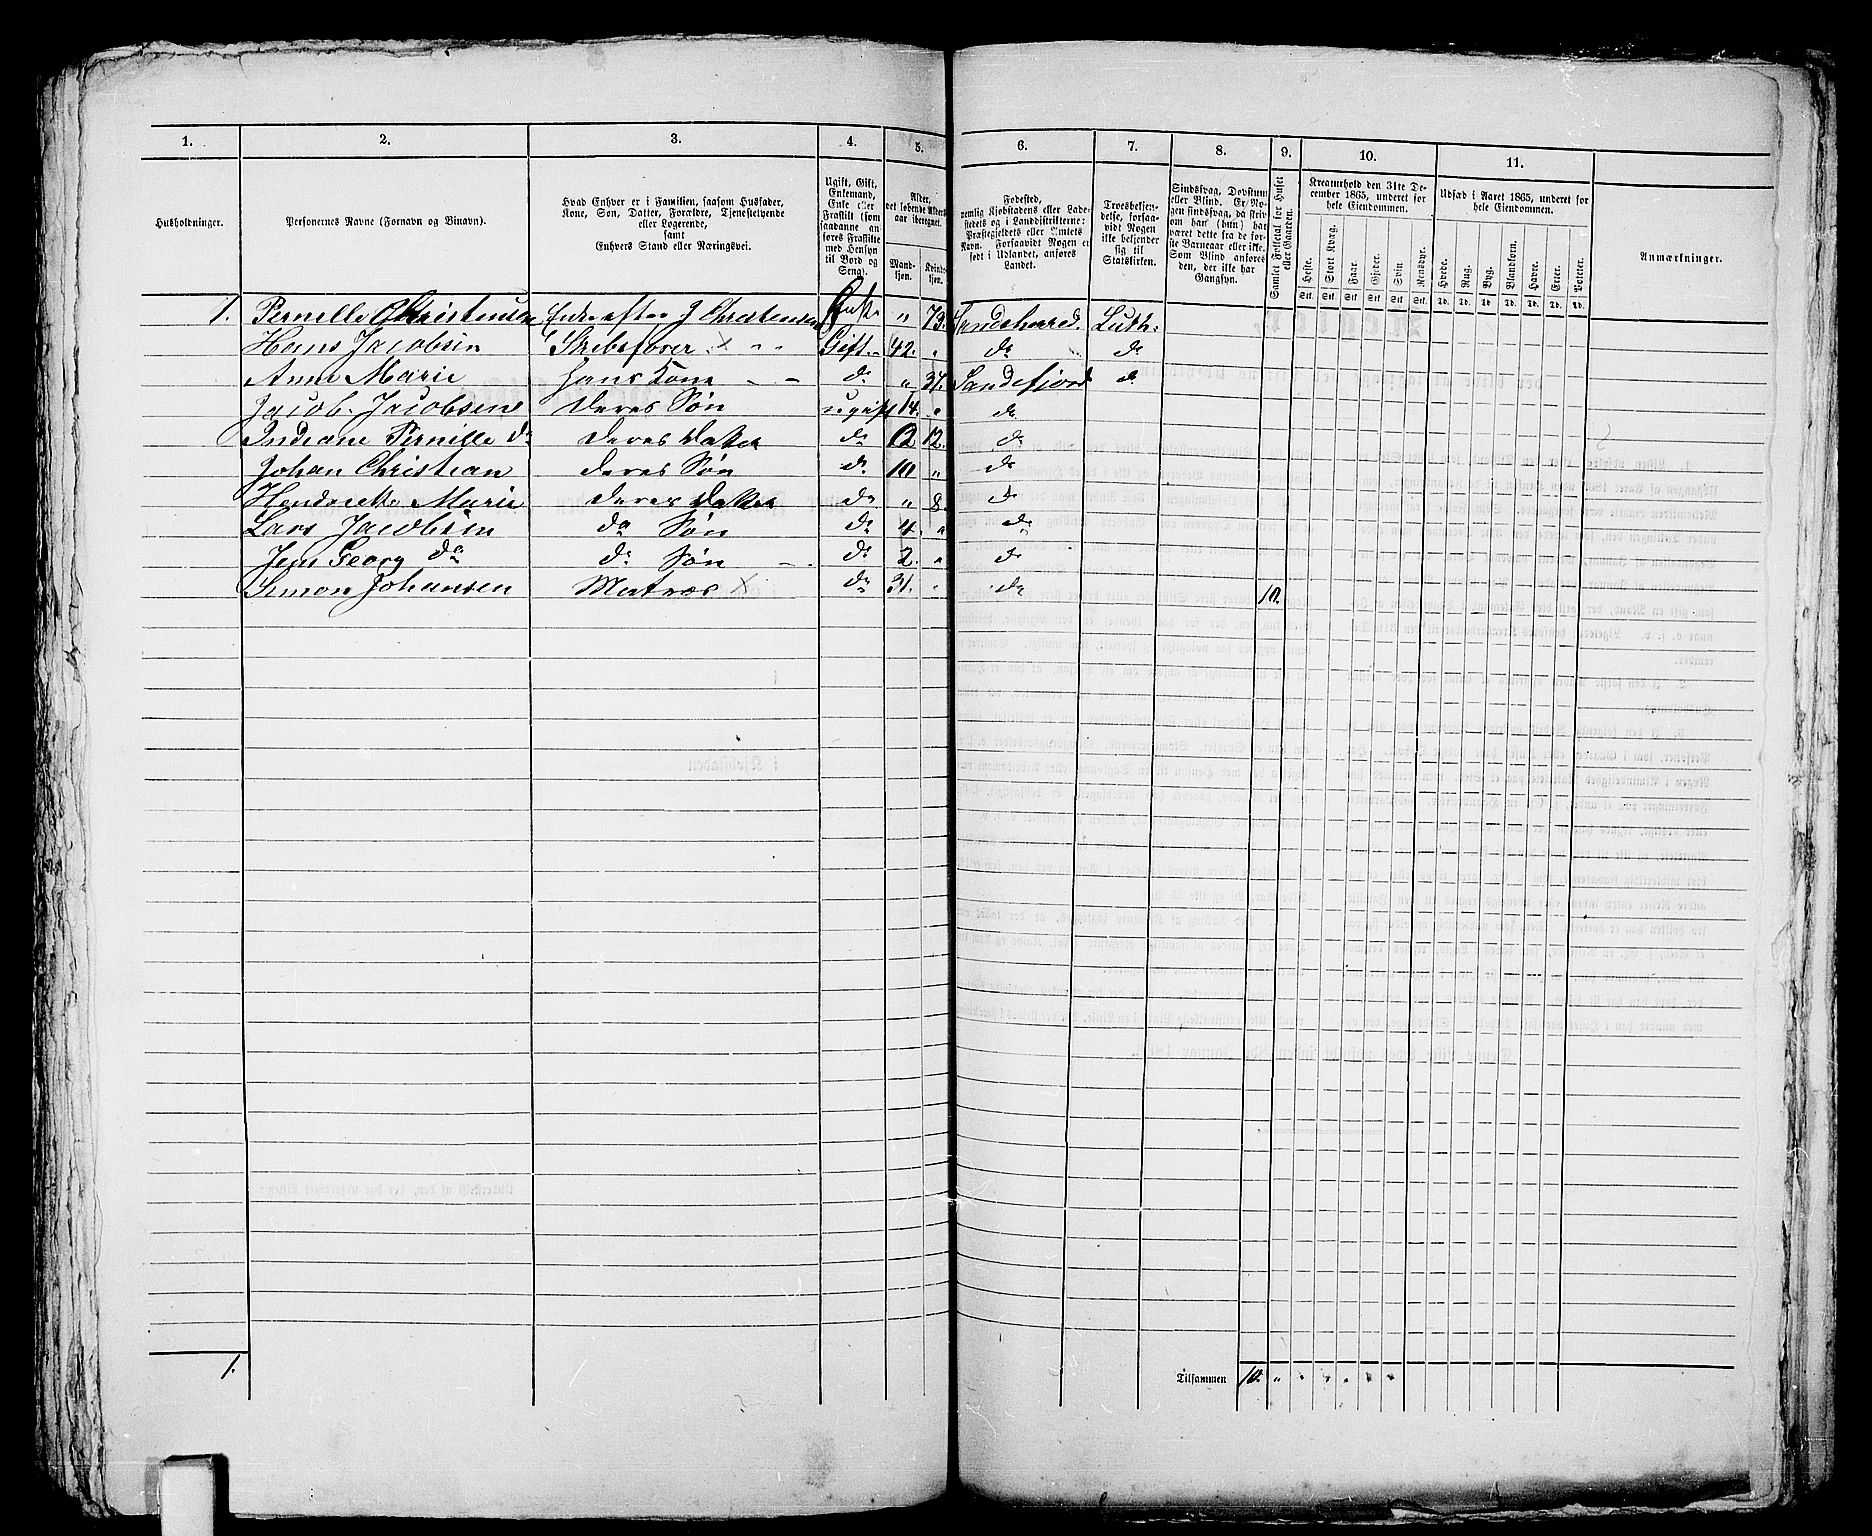 1. 2. 3. 4. 5. 6. 7. 8. 9. 10. 11.
Husholdninger.
Personernes Navne (Fornavn og Binavn).
Hvad Enhver er i Familien, saasom Husfader,
Kone, Søn, Datter, Forældre, Tjenestetyende
eller Logerende,
samt
Enhvers Stand eller Næringsvei.
Ugift, Gift,
Enkemand,
Enke eller
Fraskilt (som
saadanne an-
føres Fraskilte
med Hensyn
til Bord og
Seng).
Alder,
det løbende Alders-
aar iberegnet.
Mand-
kjøn.
Kvinde-
kjøn.
Fødested,
nemlig Kjøbstadens eller Lade-
stedets og i Landdistrikterne:
Præstegjeldets eller Amtets
Navn. Forsaavidt Nogen er
født i Udlandet, anføres
Landet.
Troesbekjen-
delse, forsaa-
vidt Nogen
ikke bekjender
sig til
Statskirken.
Sindssvag, Døvstum
eller Blind. Er No-
gen sindssvag, da skriv
om han (hun) har
været dette fra de før-
ste Barneaar eller ikke.
Som Blind anføres
den, der ikke har
Gangsyn.
Samlet Folketal for Huset
eller Gaarden.
Kreaturhold den 31te De-
cember 1865, underet for
hele Eiendommen.
Heste. Stort Kvæg. Faar. Gjeder. Svin. Rensdyr.
Stk. Stk. Stk. Stk. Stk. Stk.
Udsæd i Aaret 1865, underet for
hele Eiendommen.
Hvede. Rug. Byg. Blandkorn. Havre. Erter. Poteter.
Td. Td. Td. Td. Td. Td. Td.
Anmærkninger.
1. Pernille Christensen Enke efter J Christensen Enke „ 73. Sandeherred. Luth:
Hans Jacobsen Skibsfører x Gift 42. „ do do
Anne Marie Hans Kone do „ 37. Sandefjord do
Jacob. Jacobsen Deres Søn ugift 14. „ do
Indiane Pernille do Deres Datter do 12. do
Johan Christian deres Søn do 10 „ do
Hendrette Marie deres Datter do „ 8. do
Lars Jacobsen do Søn do 4. „ do
Jens Georg do do Søn do 2. „ do
Simon Johansen Matros x do 31. „ do 10.
1.
Tilsammen 10. „ „ „ „ „ „